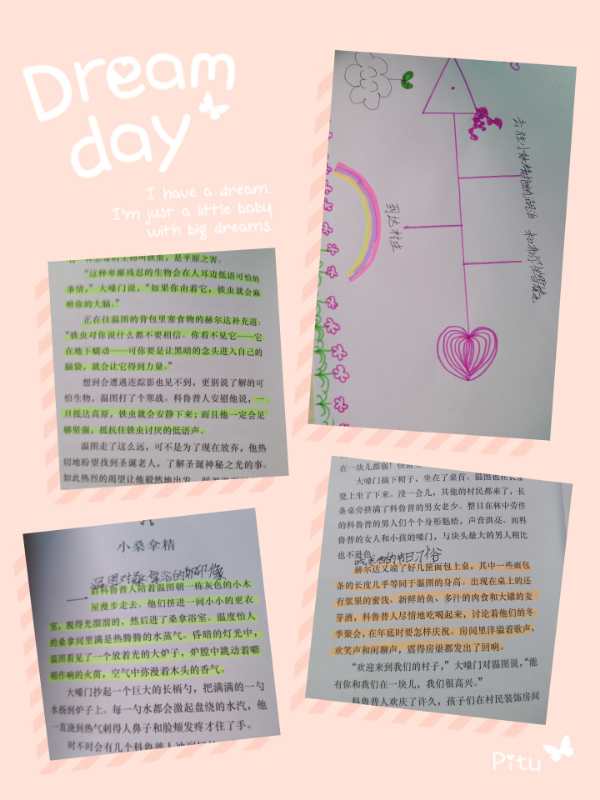 Dream
day
I have a dream.
I'm just a little baby
with big dreams.
到达村庄
“这种卑鄙残忍的生物会在人耳边低语可怕的
事情，”大嗓门说，“如果你由着它，铁虫就会麻
痹你的大脑。”
正在往温图的背包里塞食物的赫尔达补充道：
“铁虫对你说什么都不要相信。你看不见它——它
在地下蠕动——可你要是让黑暗的念头进入自己的
脑袋，就会让它得到力量。”
想到会遭遇连踪影也见不到，更别说了解的可
怕生物，温图打了个寒战。科鲁普人安慰他说，一
旦抵达高原，铁虫就会安静下来；而且他一定会足
够坚强，抵抗住铁虫讨厌的低语声。
温图走了这么远，可不是为了现在放弃，他热
切地盼望找到圣诞老人，了解圣诞神秘之光的事。
如此热烈的渴望让他毅然地出发
小桑拿精
科鲁普人陪着温图朝一栋灰色的小木
屋漫步走去。他们挤进一间小小的更衣
室，脱得光溜溜的，然后进了桑拿浴室。温度怡人
的桑拿间里满是热腾腾的水蒸气。昏暗的灯光中，
温图看见了一个放着光的大炉子，炉膛中跳动着噼
啪作响的火苗，空气中弥漫着木头的香气。
大嗓门抄起一个巨大的长柄勺，把满满的一勺
水浇到炉子上。每一勺水都会激起盘绕的水汽，他
一直浇到热气刺得人鼻子和脸颊发疼才住了手。
大嗓门摘下帽子，坐在了桌首。温图也在长
凳上坐了下来。没一会儿，其他的村民都来了，长
条桌旁挤满了科鲁普的男女老少。整日在林中劳作
的科鲁普的男人们个个身形魁梧，声音洪亮。而科
鲁普的女人和小孩的嗓门，与块头最大的男人相比
也不逊色
赫尔达又端了好几筐面包上桌，其中一些面包
条的长度几乎等同于温图的身高。出现在桌上的还
有浆果的蜜饯、新鲜的鱼、多汁的肉食和大罐的麦
芽酒，科鲁普人尽情地吃喝起来，讨论着他们的冬
季聚会，在年底时要怎样庆祝。房间里洋溢着歌声、
欢笑声和闲聊声，震得房梁都发出了回响。
“欢迎来到我们的村子，”大嗓门对温图说，“能
有你和我们在一块儿，我们很高兴。”
科鲁普人欢庆了许久，孩子们在村民装饰房间
Pitu